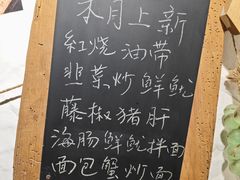 本月上新
红烧油带
韭菜炒鲜鱿
藤椒猪肝
海肠鲜鱿拌面
面包蟹炒面